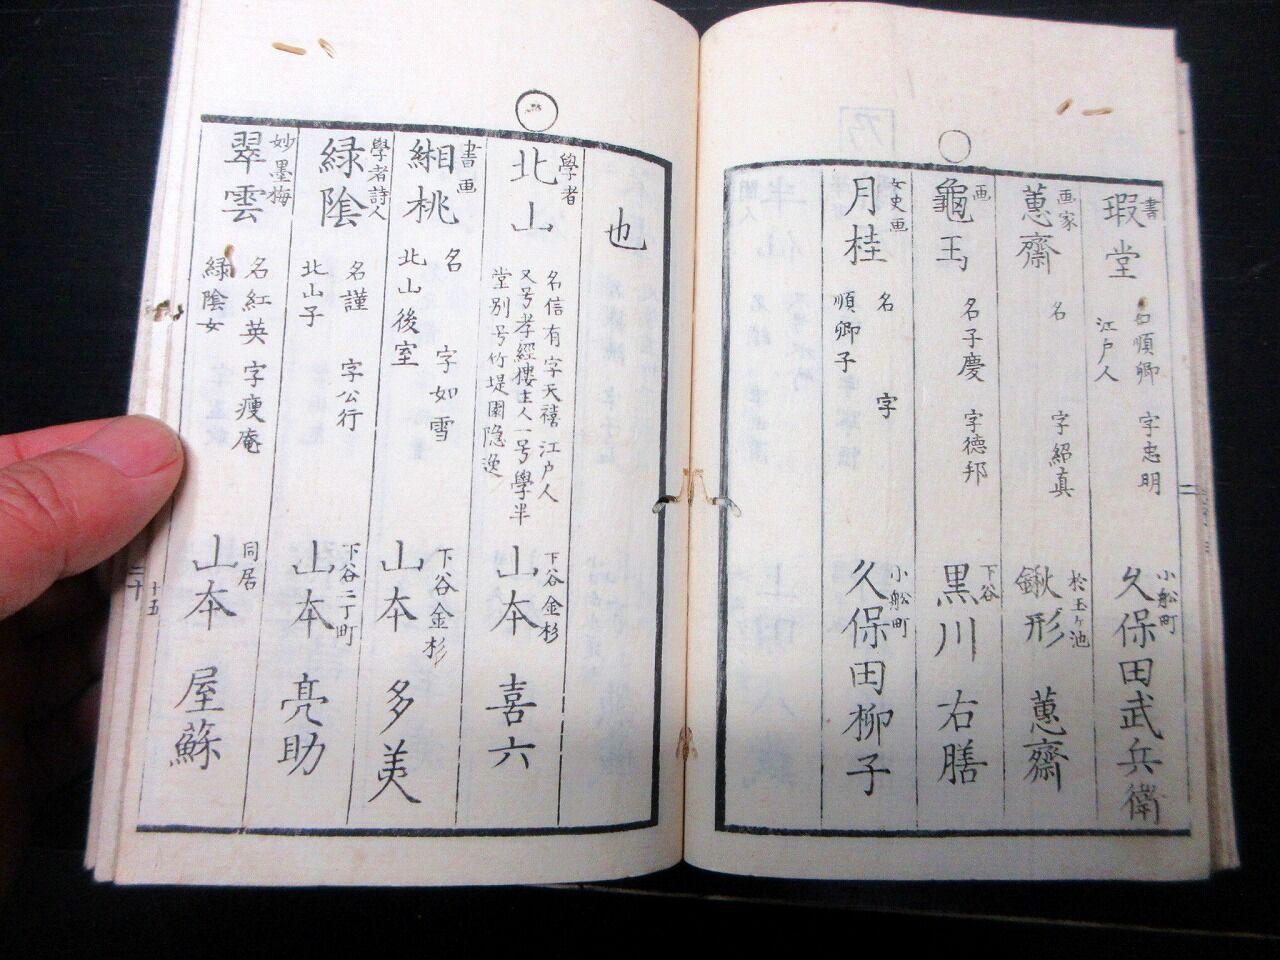 書
瑕堂
名順卿 字忠明
江戸人
小舩町
久保田武兵衛
画家
蕙齋
名 字紹真
於玉ヶ池
鍬形 蕙齋
画
龜玉
名子慶 字德邦
下谷
黒川 右膳
女史画
月桂
名 字
順卿子
小舩町
久保田柳子
也
學者
北山
名信有 字天禧 江戸人
又号孝經樓主人一号學半
堂別号竹堤園隐逸
下谷金杉
山本 喜六
書画
緗桃
名 字如雪
北山後室
下谷金杉
山本 多美
學者詩人
緑陰
名謹 字公行
北山子
下谷二丁町
山本 亮助
妙墨梅
翠雲
名紅英 字瘦庵
緑陰女
同居
山本 屋蘇
二十
十五